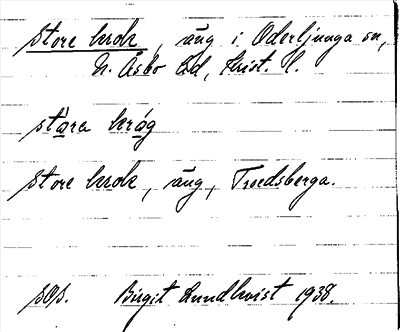 Store krok, äng i Oderljunga sn,
N. Åsbo hd, Krist. l.
stàra kråg
Store krok, äng, Troedsberga.
sOs. Birgit Lundkvist 1938.